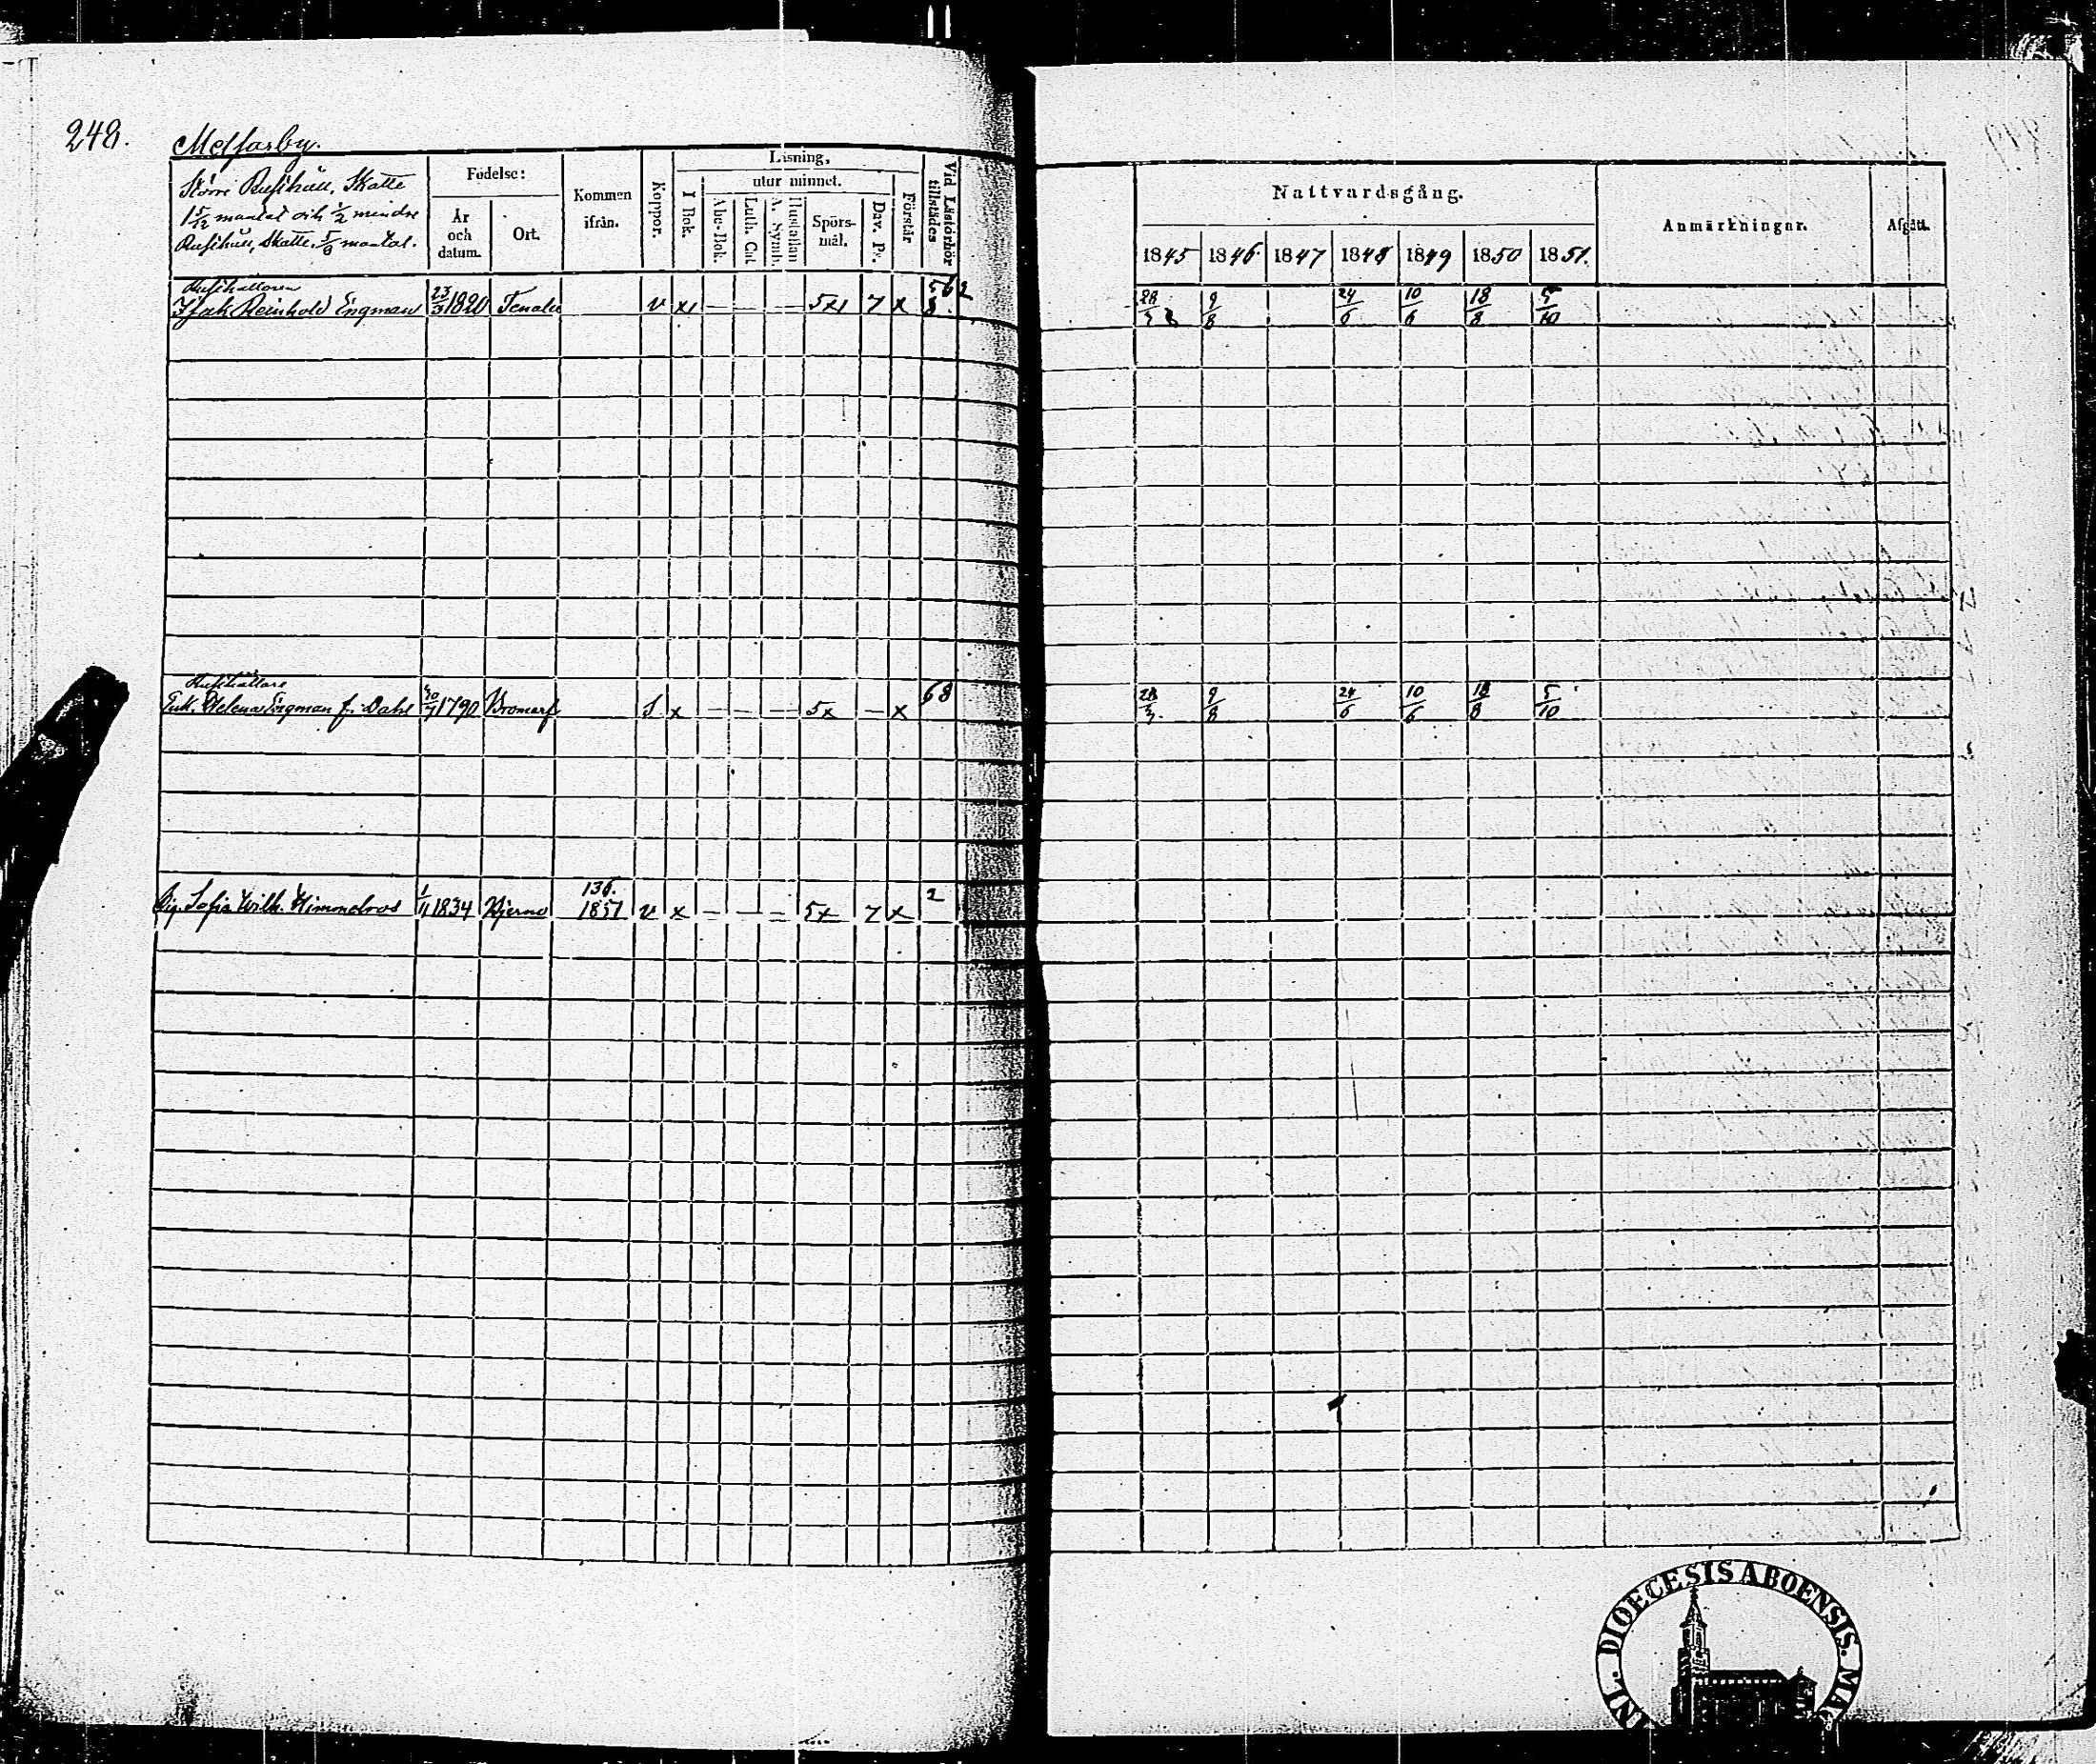 248.
Melfarby.
Större Rusthåll, Skatte
1 5/12 mantal och 1/2 mindre
Rusthåll, Skatte, 5/8 mantal.
Födelse:
År och datum.
Ort.
Kommen ifrån.
Koppor.
Läsning,
I Bok.
utur minnet.
Abc-Bok.
Luth. Cat.
Hustaflan A. Symb.
Spörs-mål.
Dav. Ps.
Förstår
Vid Läsförhör tillstädes
Nattvardsgång.
1845 1846 1847 1848 1849 1850 1851.
Anmärkningar.
Afgått.
Rusthållaren
Isak Reinhold Engman 23/3 1820 Tenala v x — — — 5x 7 x 56 2 8 28/3 9/8 24/6 10/6 18/8 5/10
Rusthållare
Enk. Helena Engman f. Dahl 1790 Bromarf S x — — — 5x — x 68 28/3 9/8 24/6 10/6 18/8 5/10
136.
Pig. Sofia Wilh. Himmelroos 1/11 1834 Kjerno 1851 v x — — = 5x 7 x 2
DIOECESIS ABOENSIS.